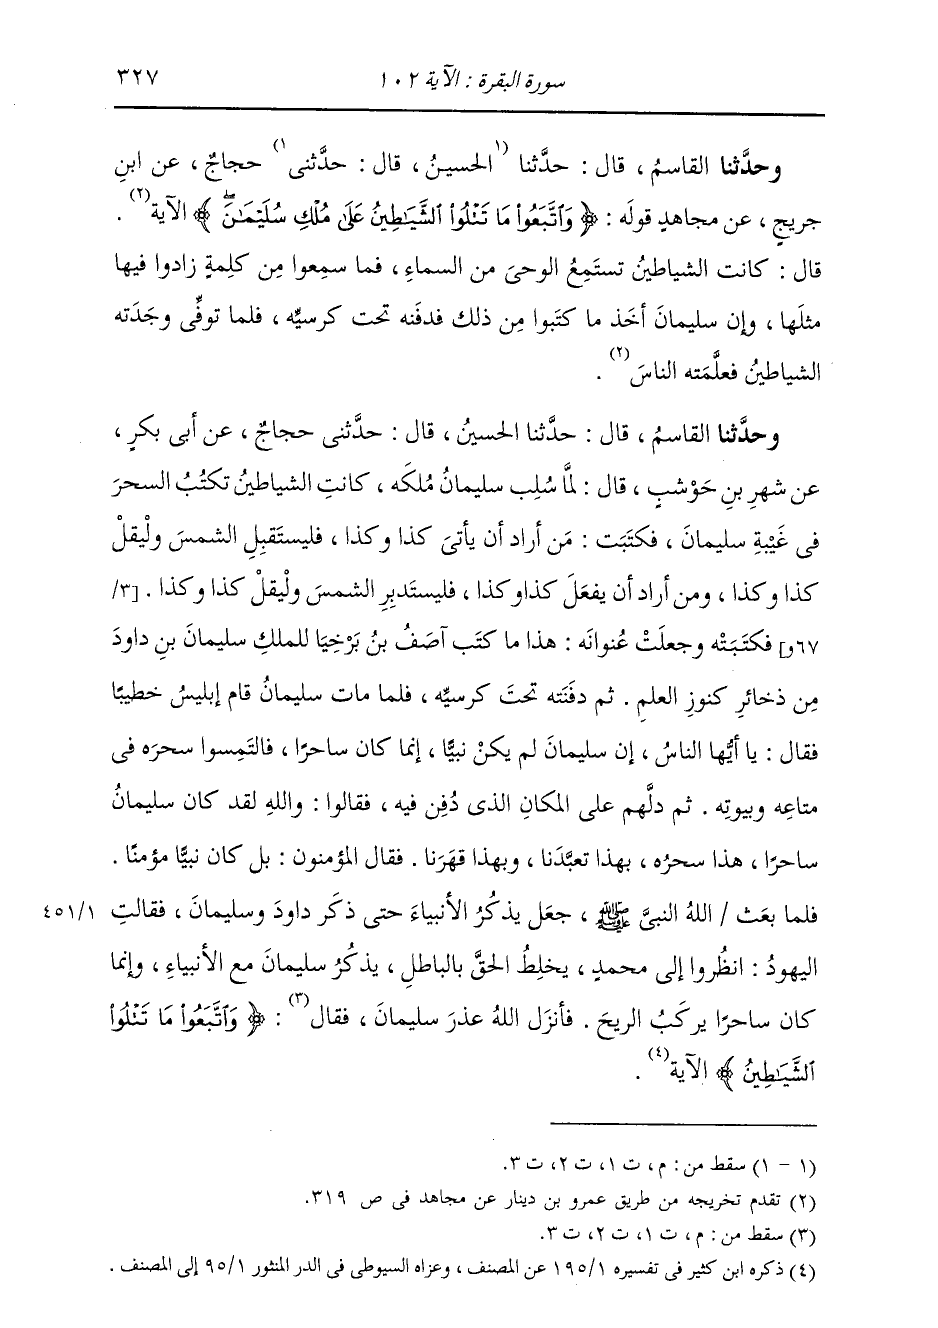 سورة البقرة : الآية ١٠٢
٣٢٧
وحدَّثنا القاسمُ ، قال : حدَّثنا (١الحسينُ ، قال : حدَّثنى١) حجاجٌ ، عن ابنِ
جريجٍ ، عن مجاهدٍ قولَه : ﴿ وَٱتَّبَعُوا۟ مَا تَتْلُوا۟ ٱلشَّيَٰطِينُ عَلَىٰ مُلْكِ سُلَيْمَٰنَۖ ﴾ الآية(٢) .
قال : كانت الشياطينُ تستَمِعُ الوحىَ من السماءِ ، فما سمِعوا مِن كلِمةٍ زادوا فيها
مثلَها ، وإن سليمانَ أخَذ ما كتَبوا مِن ذلك فدفَنه تحت كرسيِّه ، فلما توفِّى وجَدَته
الشياطينُ فعلَّمَته الناسَ(٢) .
وحدَّثنا القاسمُ ، قال : حدَّثنا الحسينُ ، قال : حدَّثنى حجاجٌ ، عن أبى بكرٍ ،
عن شهرِ بنِ حَوْشبٍ ، قال : لمَّا سُلِب سليمانُ مُلكَه ، كانتِ الشياطينُ تكتُبُ السحرَ
فى غَيْبةِ سليمانَ ، فكتَبَت : مَن أراد أن يأتىَ كذا وكذا ، فليستَقبِلِ الشمسَ ولْيقلْ
كذا وكذا ، ومن أراد أن يفعَلَ كذاوكذا ، فليستدبِرِ الشمسَ ولْيقلْ كذا وكذا . [٣/
٦٧و] فكتَبَتْه وجعلَتْ عُنوانَه : هذا ما كتَب آصَفُ بنُ بَرْخِيَا للملكِ سليمانَ بنِ داودَ
مِن ذخائرِ كنوزِ العلمِ . ثم دفَنَته تحتَ كرسيِّه ، فلما مات سليمانُ قام إبليسُ خطيبًا
فقال : يا أيُّها الناسُ ، إن سليمانَ لم يكنْ نبيًّا ، إنما كان ساحرا ، فالتَمِسوا سحرَه فى
متاعِه وبيوتِه . ثم دلَّهم على المكانِ الذى دُفِن فيه ، فقالوا : واللهِ لقد كان سليمانُ
ساحرًا ، هذا سحرُه ، بهذا تعبَّدَنا ، وبهذا قهَرَنا . فقال المؤمنون : بل كان نبيًّا مؤمنًا .
فلما بعَث / اللهُ النبىَّ ﷺ ، جعَل يذكُرُ الأنبياءَ حتى ذكَر داودَ وسليمانَ ، فقالتِ
٤٥١/١
اليهودُ : انظُروا إلى محمدٍ ، يخلِطُ الحقَّ بالباطلِ ، يذكُرُ سليمانَ مع الأنبياءِ ، وإنما
كان ساحرًا يركَبُ الريحَ . فأنزَل اللهُ عذرَ سليمانَ ، فقال(٣) : ﴿ وَٱتَّبَعُوا۟ مَا تَتْلُوا۟
ٱلشَّيَٰطِينُ ﴾ الآية(٤) .
(١ - ١) سقط من : م ، ت ١، ت ٢، ت ٣.
(٢) تقدم تخريجه من طريق عمرو بن دينار عن مجاهد فى ص ٣١٩.
(٣) سقط من : م ، ت ١، ت ٢، ت ٣.
(٤) ذكره ابن كثير فى تفسيره ١٩٥/١ عن المصنف ، وعزاه السيوطى فى الدر المنثور ٩٥/١ إلى المصنف .